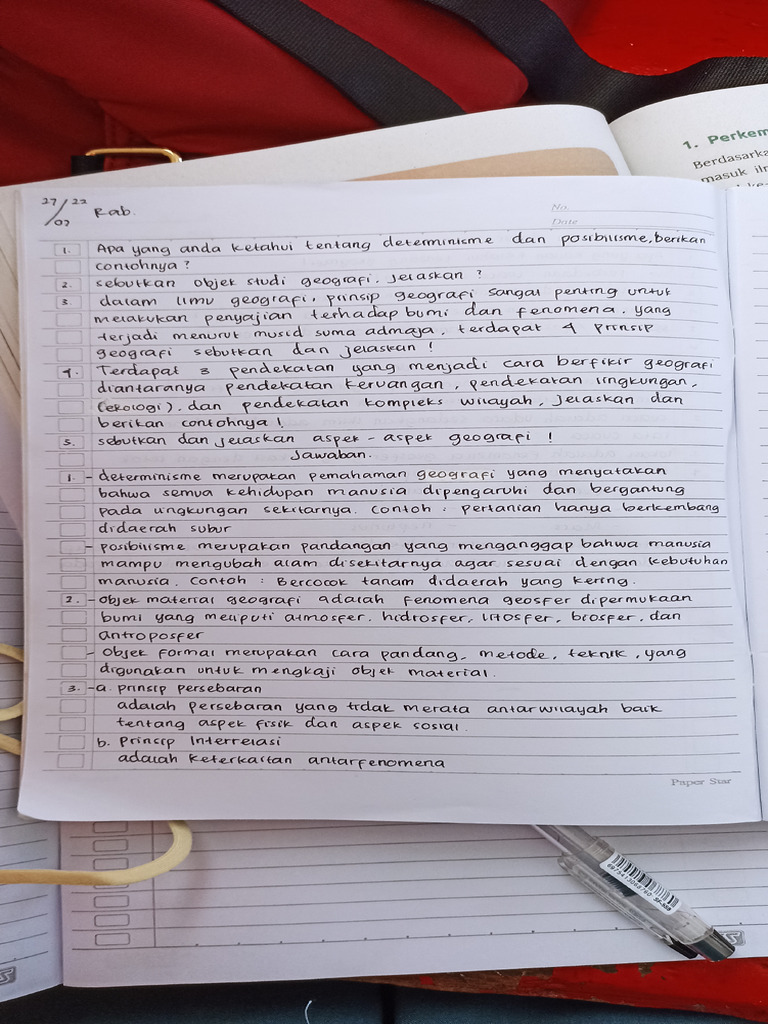 1. Perkem
Berdasarka
masuk ilr
27/07 22 Rab.
No.
Date
1. Apa yang anda ketahui tentang determinisme dan posibilisme, berikan
contohnya ?
2. sebutkan objek studi geografi. Jelaskan ?
3. dalam ilmu geografi, prinsip geografi sangat penting untuk
melakukan penyajian terhadap bumi dan fenomena. yang
terjadi menurut musid suma admaja. terdapat 4 prinsip
geografi sebutkan dan jelaskan !
4. Terdapat 3 pendekatan yang menjadi cara berfikir geografi
diantaranya pendekatan keruangan, pendekatan lingkungan,
(ekologi), dan pendekatan kompleks wilayah, Jelaskan dan
berikan contohnya !
5. sebutkan dan jelaskan aspek - aspek geografi !
Jawaban.
1. - determinisme merupakan pemahaman geografi yang menyatakan
bahwa semua kehidupan manusia dipengaruhi dan bergantung
pada lingkungan sekitarnya. contoh : pertanian hanya berkembang
didaerah subur
- posibilisme merupakan pandangan yang menganggap bahwa manusia
mampu mengubah alam disekitarnya agar sesuai dengan kebutuhan
manusia. contoh : Bercocok tanam didaerah yang kering.
2. - objek material geografi adalah fenomena geosfer dipermukaan
bumi yang meliputi atmosfer, hidrosfer, litosfer, biosfer, dan
antroposfer
- objek formal merupakan cara pandang, metode, teknik, yang
digunakan untuk mengkaji objek material.
3. - a. prinsip persebaran
adalah persebaran yang tidak merata antarwilayah baik
tentang aspek fisik dan aspek sosial.
b. Prinsip Interrelasi
adalah keterkaitan antarfenomena
Paper Star